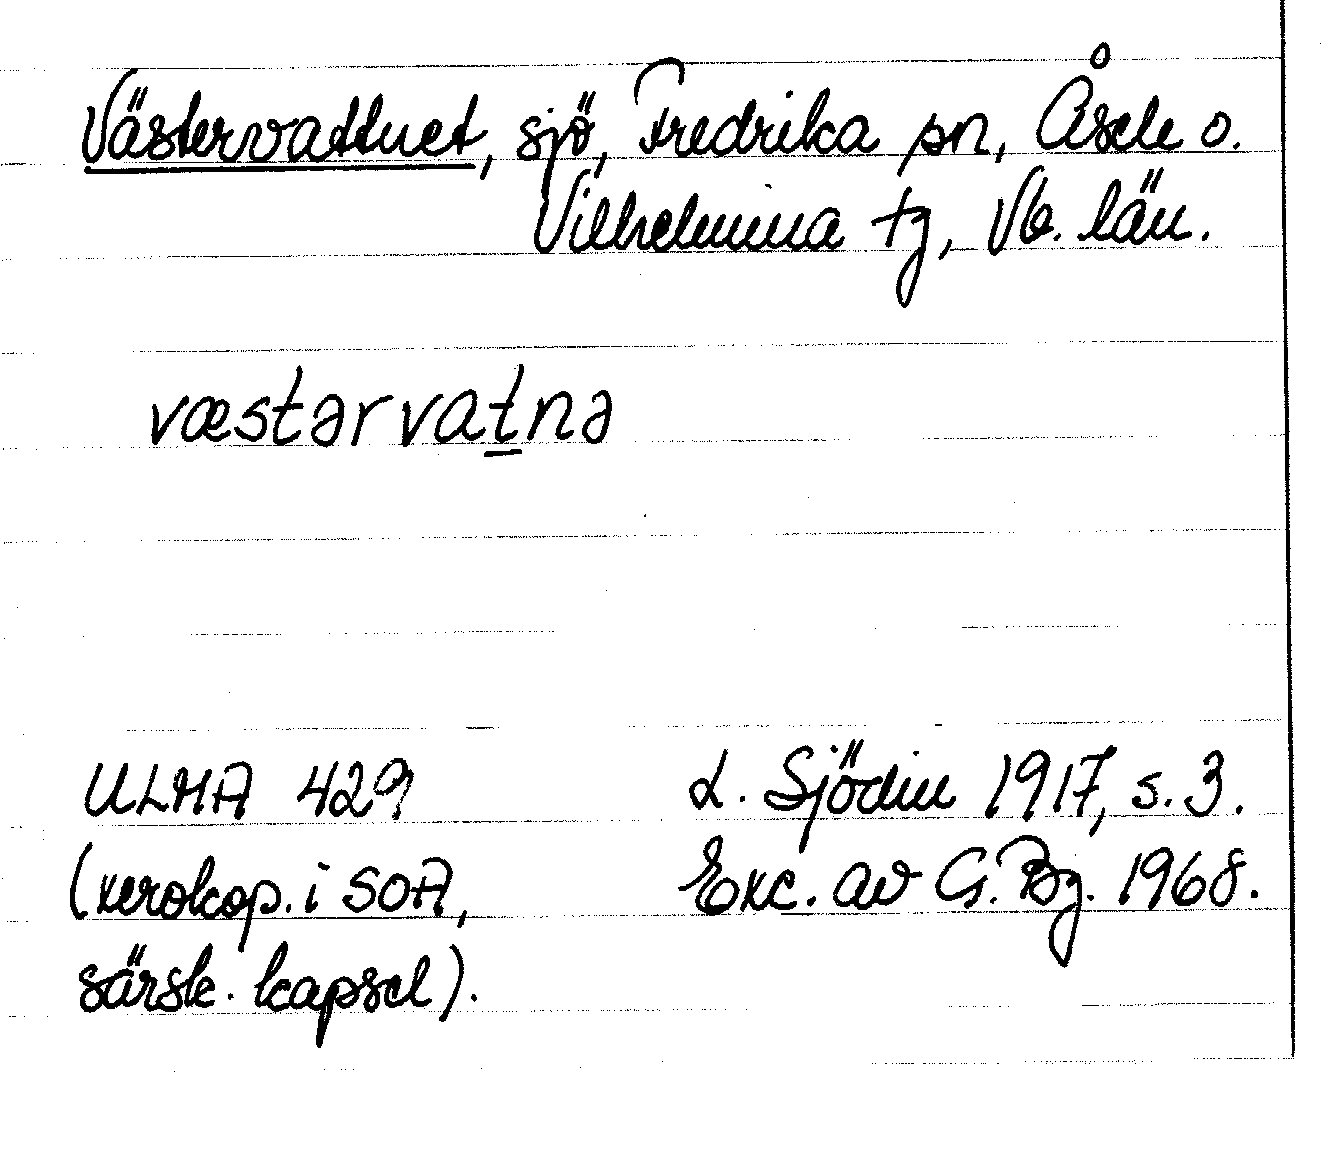 Västervattnet, sjö, Fredrika sn, Åsele o.
Vilhelmina tg, Vb. län.
væstərvat̲nə
ULMA 429
(xerokop. i SOA,
särsk. kapsel).
L. Sjödin 1917, s. 3.
Exc. av G. Bg. 1968.